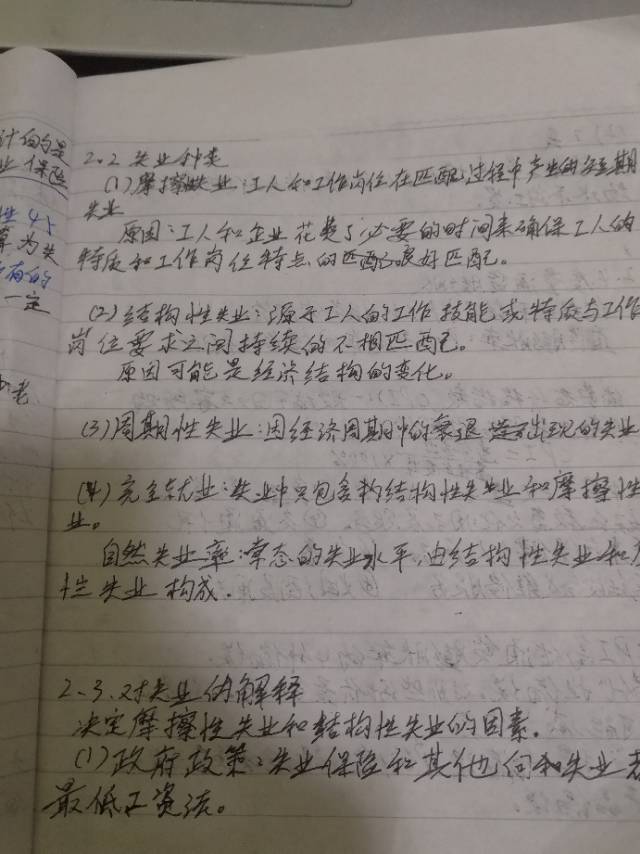 计的是
业保险
性
算为失
有的
一定
老
2.2 失业种类
(1)摩擦性失业:工人和工作岗位在匹配过程中产生的短期
失业
原因:工人和企业花费了必要的时间来确保工人的
特质和工作岗位特点的匹配良好匹配。
(2)结构性失业:源于工人的工作技能或特质与工作
岗位要求之间持续的不相匹配。
原因可能是经济结构的变化。
(3)周期性失业:因经济周期中的衰退 出现的失业
(4)完全就业:失业中只包含 结构性失业和摩擦性
业。
自然失业率:常态的失业水平,由结构性失业和
性失业构成.
2.3.对失业的解释
决定摩擦性失业和结构性失业的因素.
(1)政府政策:失业保险和其他向和失业者
最低工资法。